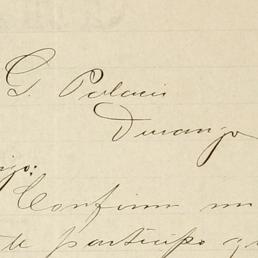 G. Palacio
Durango
Confirmo mi
te participo q